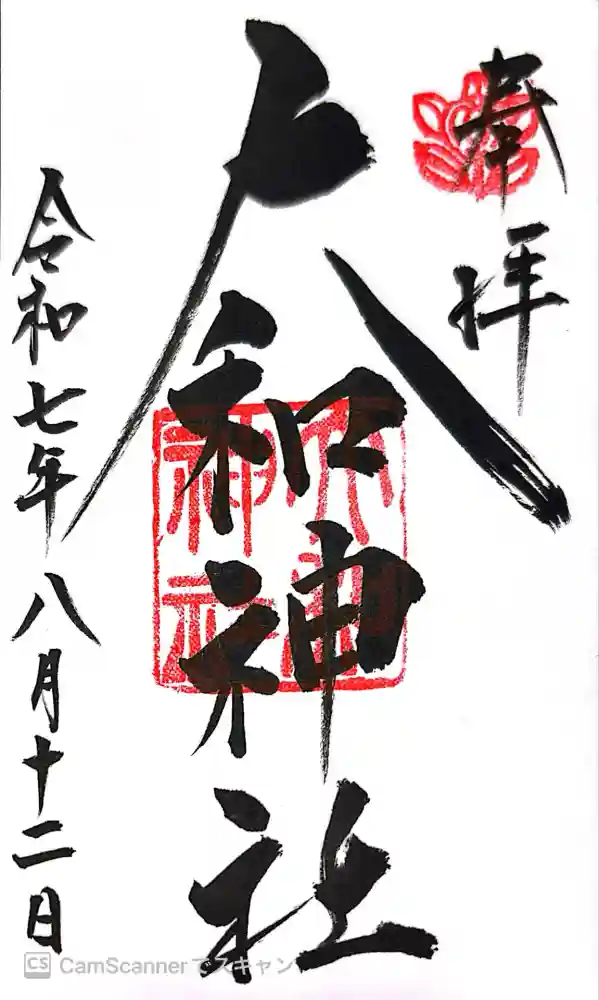 奉拝
大和神社
令和七年八月十二日
CS CamScannerでスキャン